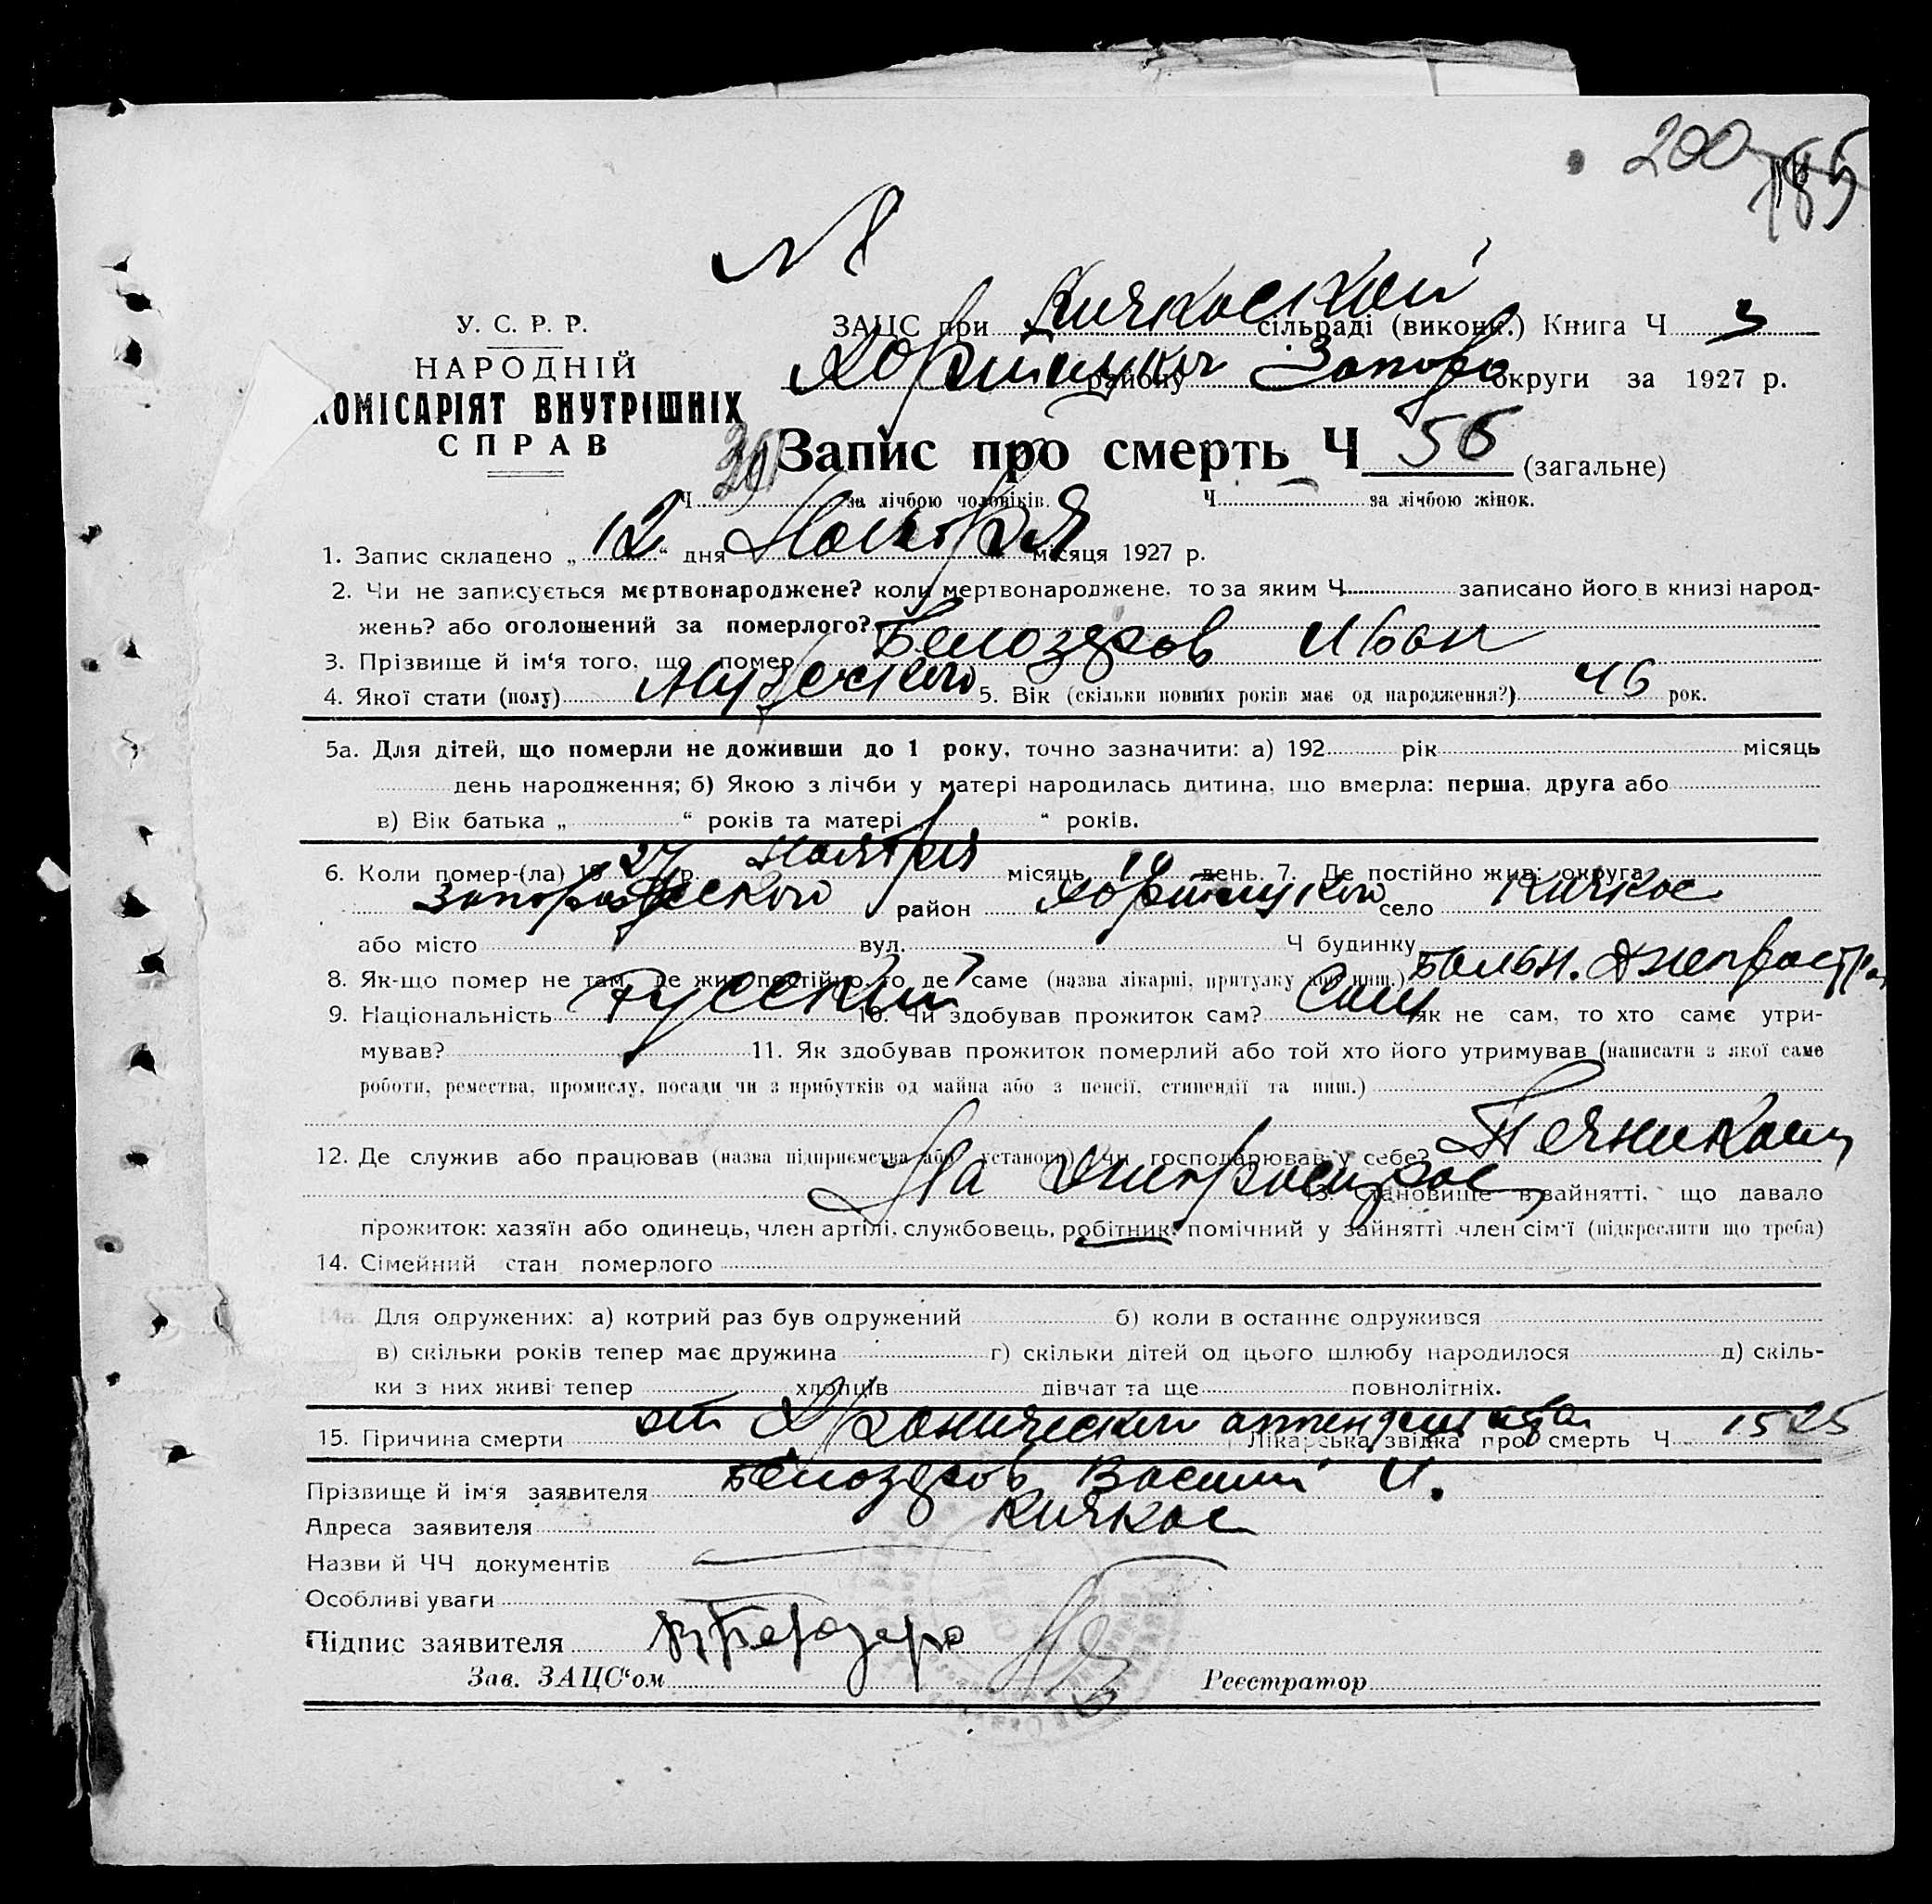 200 185
N 8
У. С. Р. Р.
НАРОДНІЙ
КОМІСАРІЯТ ВНУТРІШНІХ
СПРАВ
ЗАЦС при Кичкаской сільраді (викон.) Книга Ч 3
Хортицкого району Запор. округи за 1927 р.
Запис про смерть Ч 56 (загальне)
Ч за лічбою чоловіків. Ч за лічбою жінок.
1. Запис складено „ 12 “ дня Ноября місяця 1927 р.
2. Чи не записується мертвонароджене? коли мертвонароджене, то за яким Ч записано його в книзі народ-
жень? або оголошений за померлого?
3. Прізвище й ім'я того, що помер Белозяров Иван
4. Якої стати (полу) Мужского 5. Вік (скільки повних років має од народження?) 46 рок.
5а. Для дітей, що померли не доживши до 1 року, точно зазначити: а) 192 рік місяць
день народження; б) Якою з лічби у матері народилась дитина, що вмерла: перша, друга або
в) Вік батька „ “ років та матері „ “ років.
6. Коли помер-(ла) 19 27 р. Ноября місяць 10 день. 7. Де постійно жив: округа
Запорожского район Хортицкого село Кичкас
або місто вул. Ч будинку
8. Як-що помер не там, де жив постійно, то де саме (назва лікарні, притулку або инш.) Больн. Днепростроя
9. Національність Русский 10. Чи здобував прожиток сам? Сам як не сам, то хто саме утри-
мував? 11. Як здобував прожиток померлий або той хто його утримував (написати з якої саме
роботи, ремества, промислу, посади чи з прибутків од майна або з пенсії, стипендії та инш.)
Печником
12. Де служив або працював (назва підприємства або установи) Чи господарював у себе?
На Днепрострое 13. Становище в зайнятті, що давало
прожиток: хазяїн або одинець, член артілі, службовець, робітник, помічний у зайнятті член сім'ї (підкреслити що треба)
14. Сімейний стан померлого
14а. Для одружених: а) котрий раз був одружений б) коли в останнє одружився
в) скільки років тепер має дружина г) скільки дітей од цього шлюбу народилося д) скіль-
ки з них живі тепер хлопців дівчат та ще повнолітніх.
15. Причина смерти от Хронического аппендицита Лікарська звідка про смерть Ч 1525
Прізвище й ім'я заявителя Белозяров Василий И.
Адреса заявителя Кичкас
Назви й ЧЧ документів
Особливі уваги
Підпис заявителя
Зав. ЗАЦС“ом Реєстратор